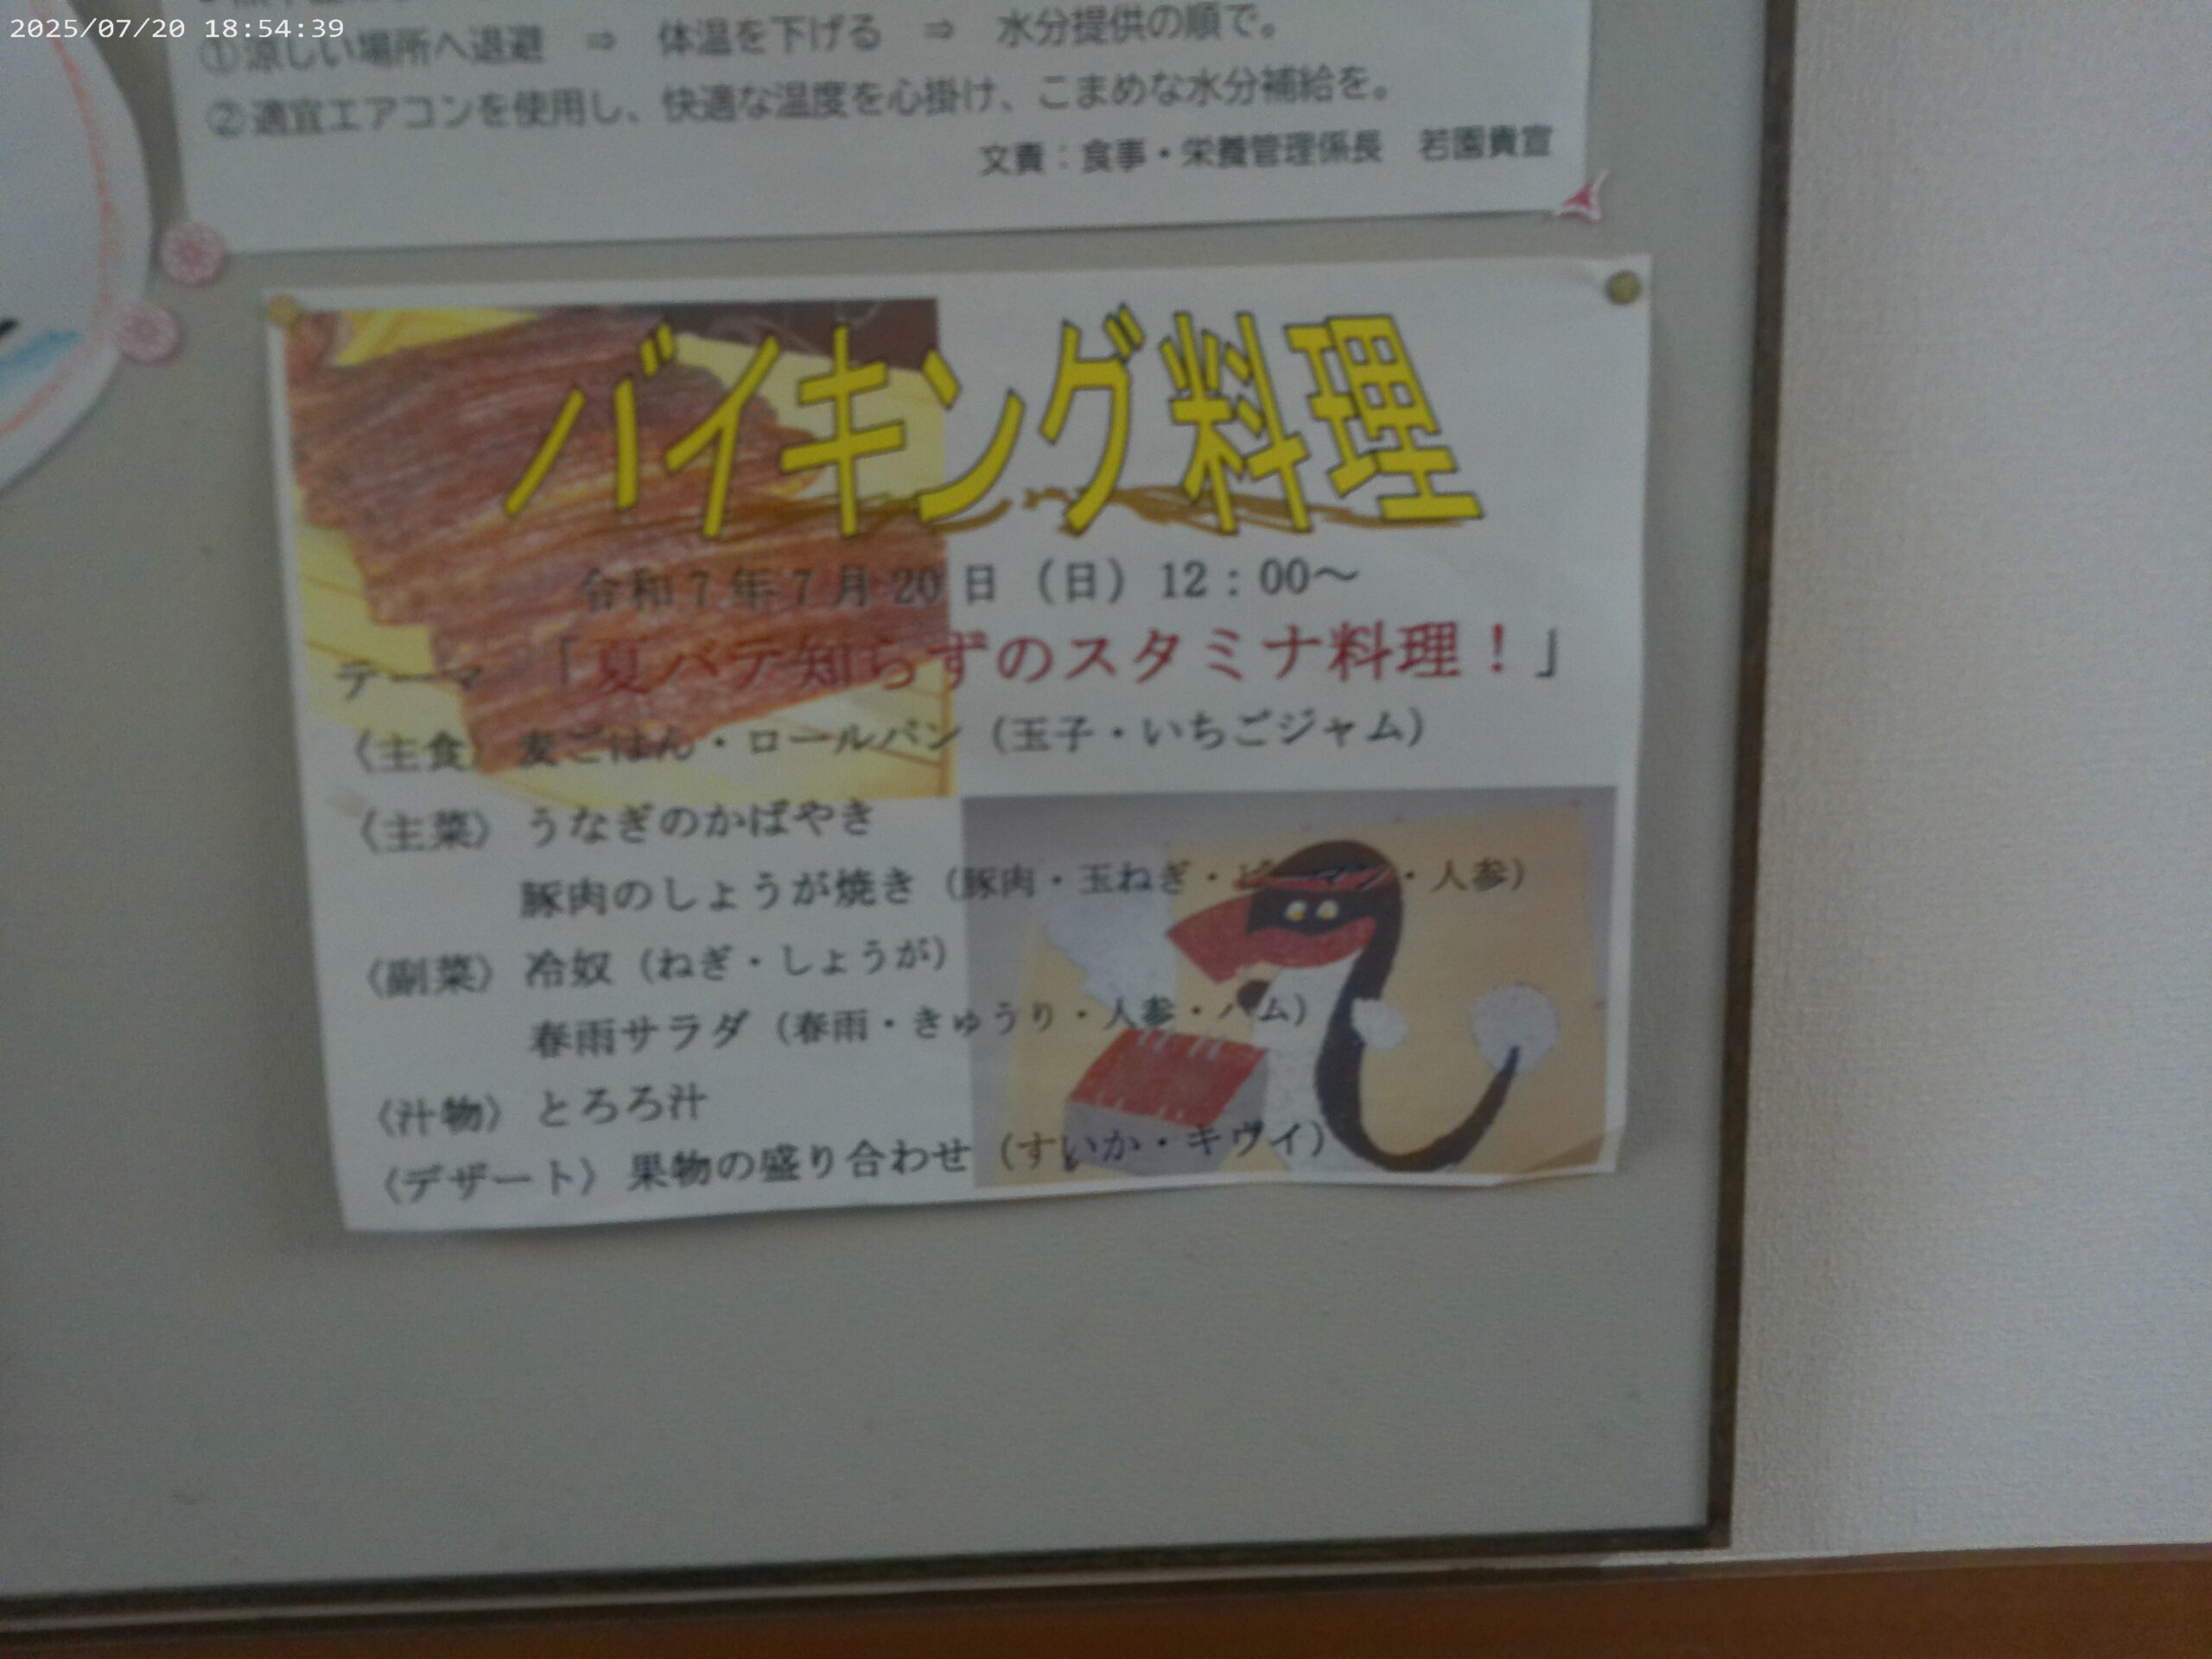 2025/07/20 18:54:39
①涼しい場所へ退避 ⇒ 体温を下げる ⇒ 水分提供の順で。
②適宜エアコンを使用し、快適な温度を心掛け、こまめな水分補給を。
文責：食事・栄養管理係長 若園貴宣
バイキング料理
令和7年7月20日（日）12：00～
テーマ 「夏バテ知らずのスタミナ料理！」
〈主食〉麦ごはん・ロールパン（玉子・いちごジャム）
〈主菜〉うなぎのかばやき
豚肉のしょうが焼き（豚肉・玉ねぎ・ピーマン・人参）
〈副菜〉冷奴（ねぎ・しょうが）
春雨サラダ（春雨・きゅうり・人参・ハム）
〈汁物〉とろろ汁
〈デザート〉果物の盛り合わせ（すいか・キヴイ）